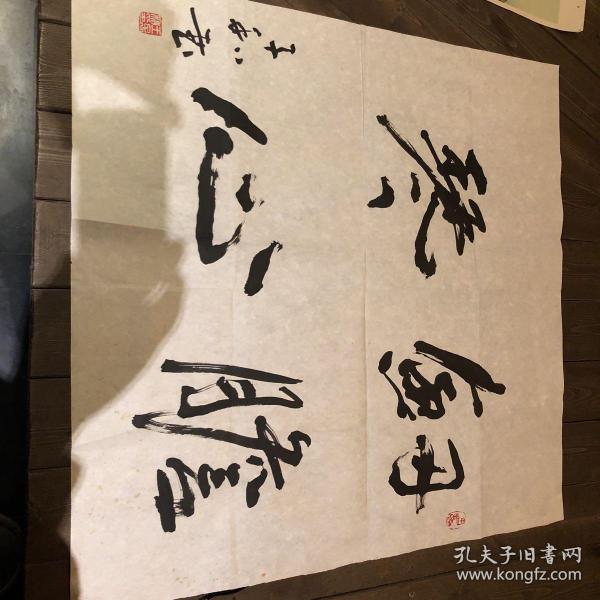 劍膽
琴心
孔夫子旧书网
www.kongfz.com